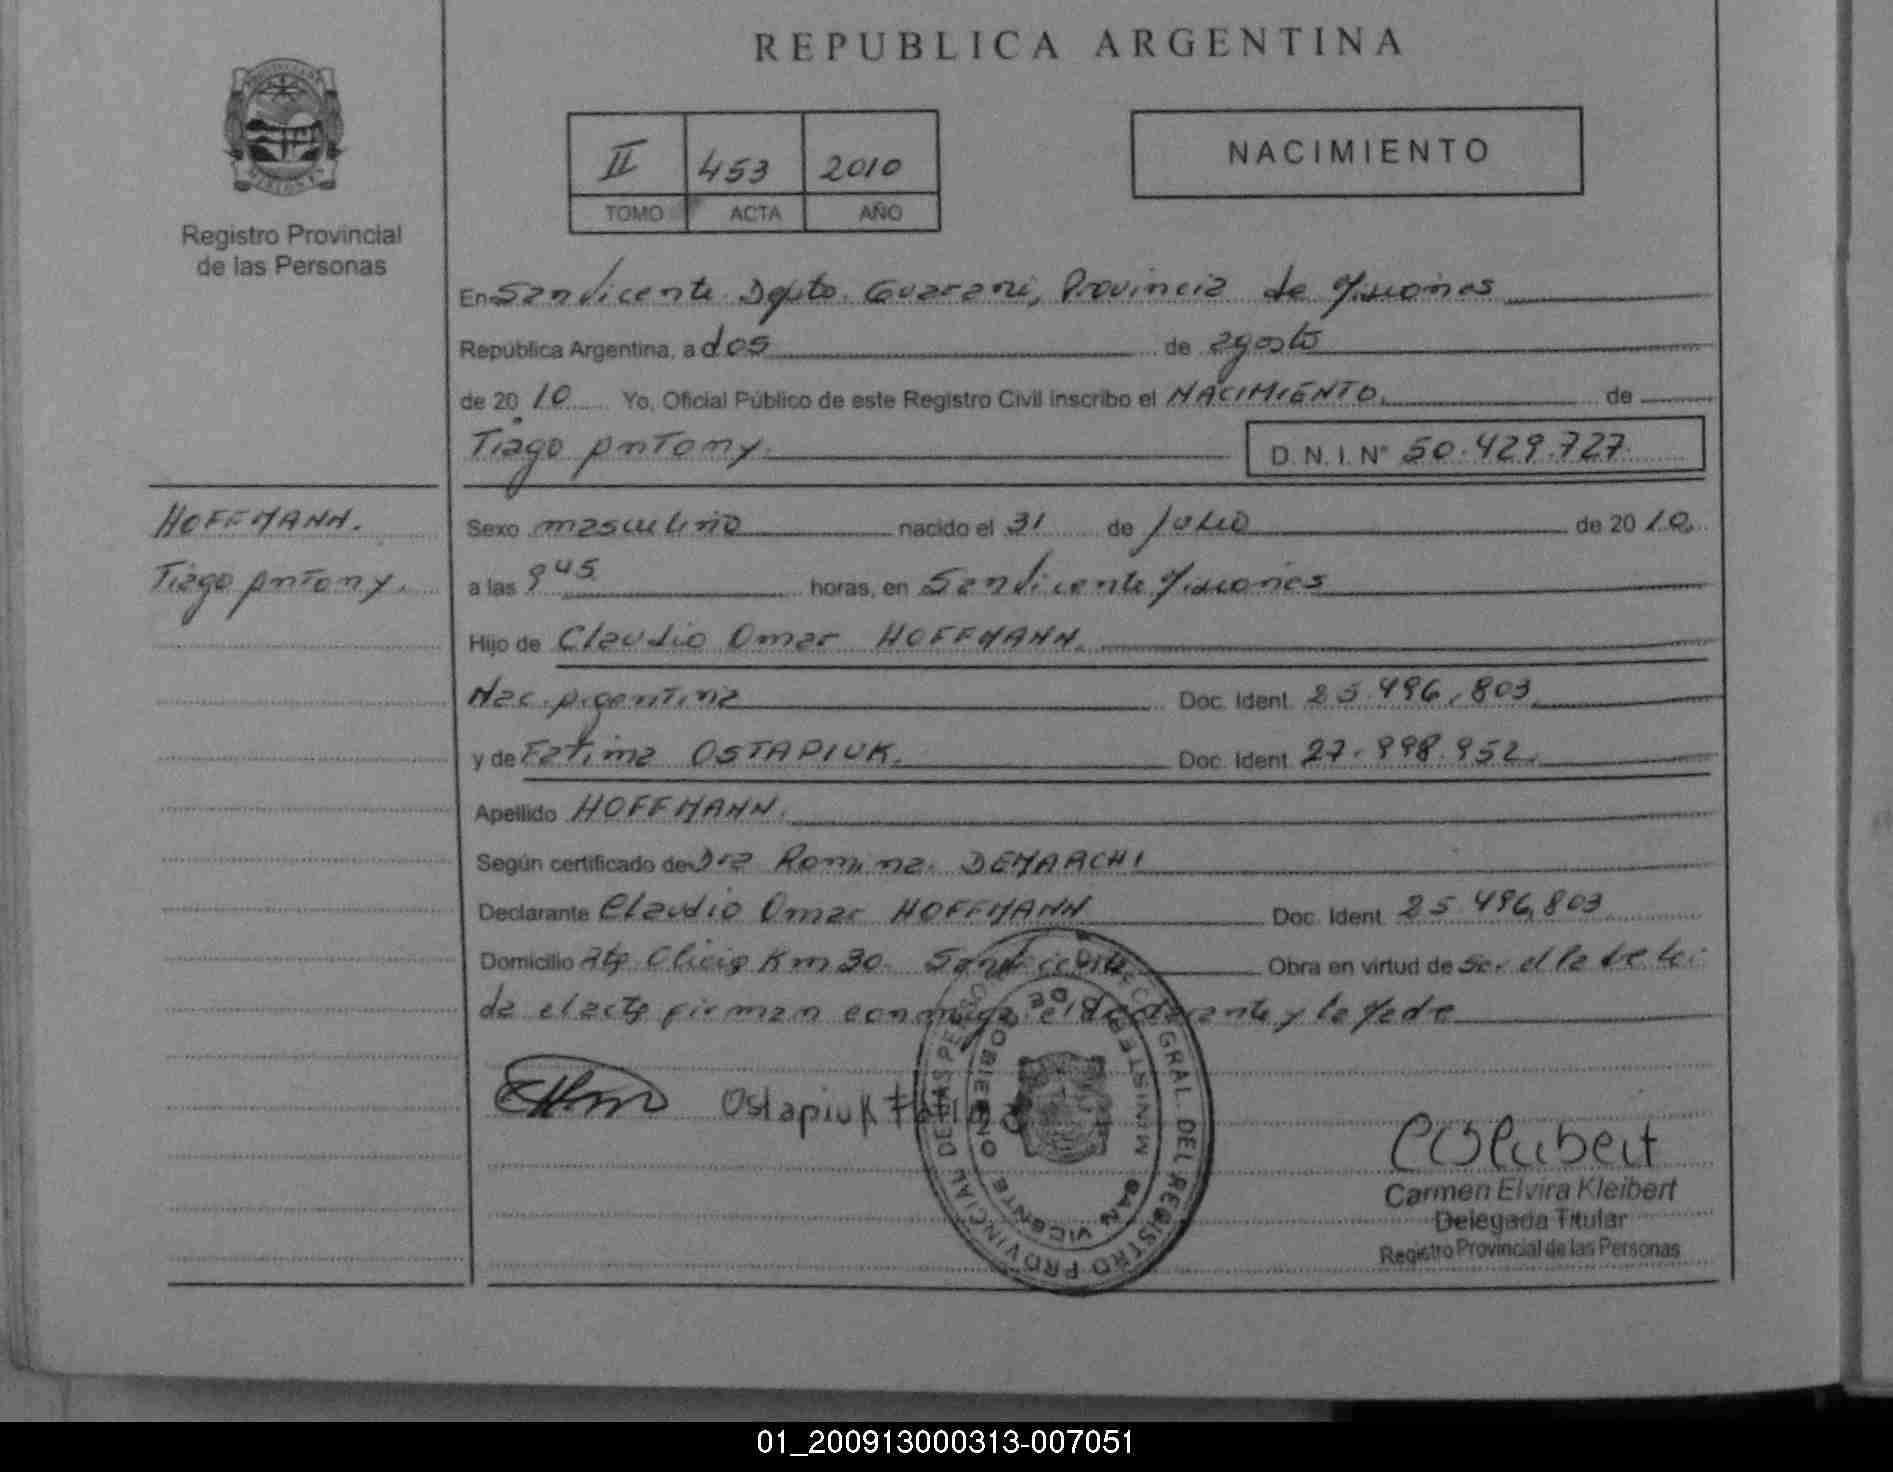 REPUBLICA ARGENTINA
II 453 2010
TOMO ACTA AÑO
NACIMIENTO
Registro Provincial
de las Personas
En San Vicente Depto. Guarani, Provincia de Misiones
República Argentina, a dos de agosto
de 2010 Yo, Oficial Público de este Registro Civil inscribo el NACIMIENTO. de
Tiago Antony. D.N.I. Nº 50.429.727
HOFFMANN.
Tiago Antony.
Sexo masculino nacido el 31 de Julio de 2010.
a las 9 45 horas, en San Vicente Misiones
Hijo de Claudio Omar HOFFMANN.
Nac. Argentina Doc. Ident. 25.496.803
y de Fatima OSTAPIUK. Doc. Ident. 27.998.952.
Apellido HOFFMANN.
Según certificado de Dra Romina DEMARCHI
Declarante Claudio Omar HOFFMANN Doc. Ident. 25.496.803
Domicilio Km 30. San Vicente Obra en virtud de ser el
el acta firman conmigo el declarante y la Madre
Ostapiuk Fatima
DIREC. GRAL. DEL REGISTRO PROVINCIAL DE LAS PERSONAS
MINISTERIO DE GOBIERNO
SAN VICENTE
Carmen Elvira Kleibert
Delegada Titular
Registro Provincial de las Personas
01_200913000313-007051